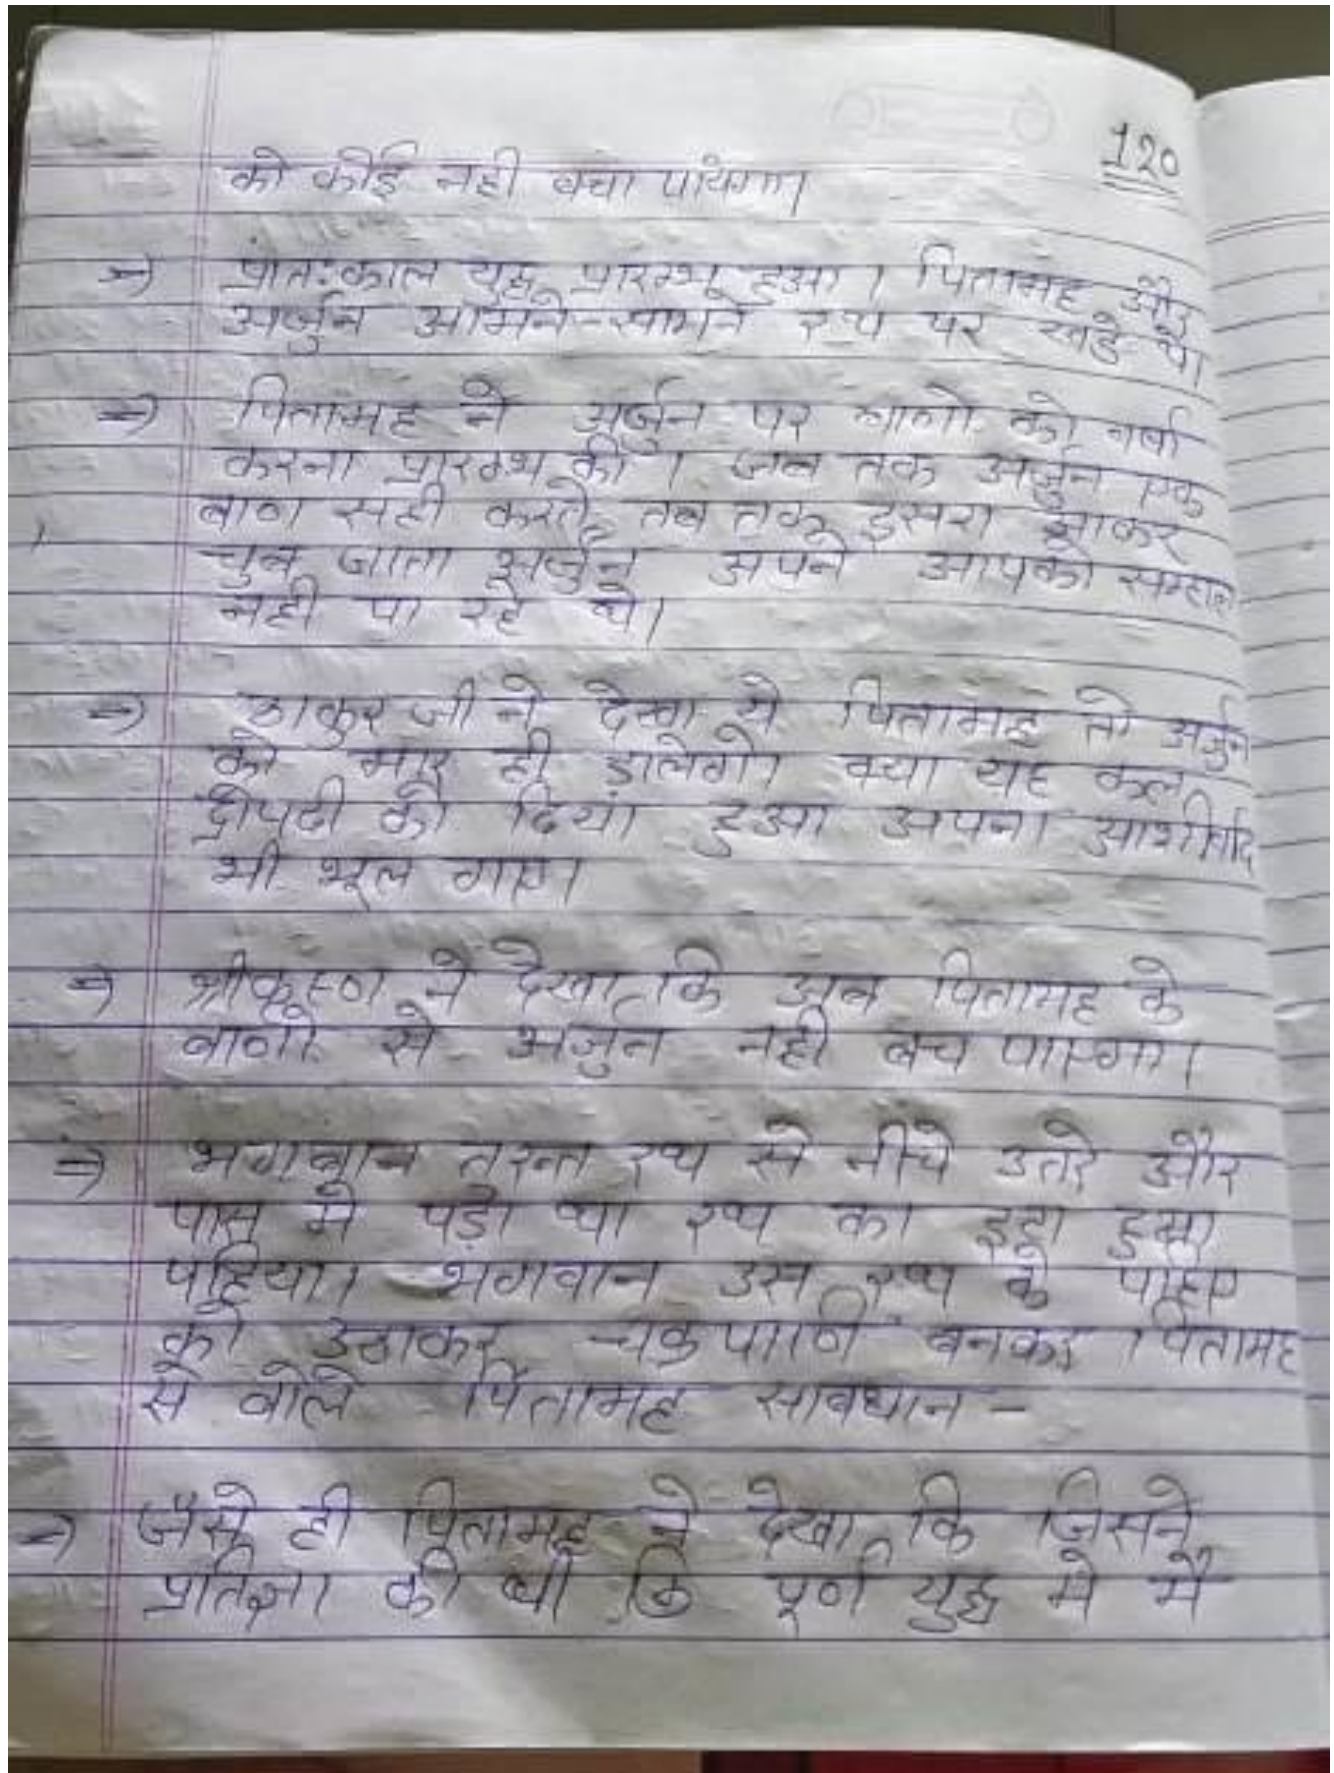 120
को कोई नही बचा पांयगा।
-> प्रात:काल युद्ध प्रारम्भ हुआ । पितामह और
अर्जुन आमने-सामने रथ पर खडे थे।
=> पितामह ने अर्जुन पर बाणो की वर्षा
करना प्रारम्भ की । जब तक अर्जुन एक
बाण सही करते, तब तक दुसरा आकर
चुब जाता अर्जुन अपने आपको सम्हाल
नही पा रहे थे।
=> ठाकुर जी ने देखा ये पितामह तो अर्जुन
को मार ही डालेगे। क्या यह कल
द्रोपदी को दिया हुआ अपना आशीर्वाद
भी भूल गए।
=> श्रीकृष्ण ने देखा कि अब पितामह के
बाणो से अर्जुन नही बच पाएगा।
=> भगवान तुरन्त रथ से नीचे उतरे और
पास मे पड़ा था रथ का टुटा हुआ
पहिया। भगवान उस रथ के पहिए
को उठाकर चक्रपाणि बनकर पितामह
से बोले पितामह सावधान -
=> जैसे ही पितामह ने देखा कि जिसने
प्रतिज्ञा की थी कि पूर्ण युद्ध मे मै